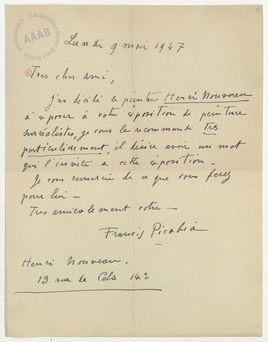 AAAB
Lundi 9 mai 1947
Tres cher ami,
J'ai décidé le peintre Henri Nouveau
à exposer à votre exposition de peinture
surréalistes, je vous le recommande très
particulièrement, il désire avoir un mot
qui l'invite a cette exposition -
Je vous remercie de ce que vous ferez
pour lui -
Tres amicalement votre -
Francis Picabia
Henri Nouveau.
19 rue de 14e